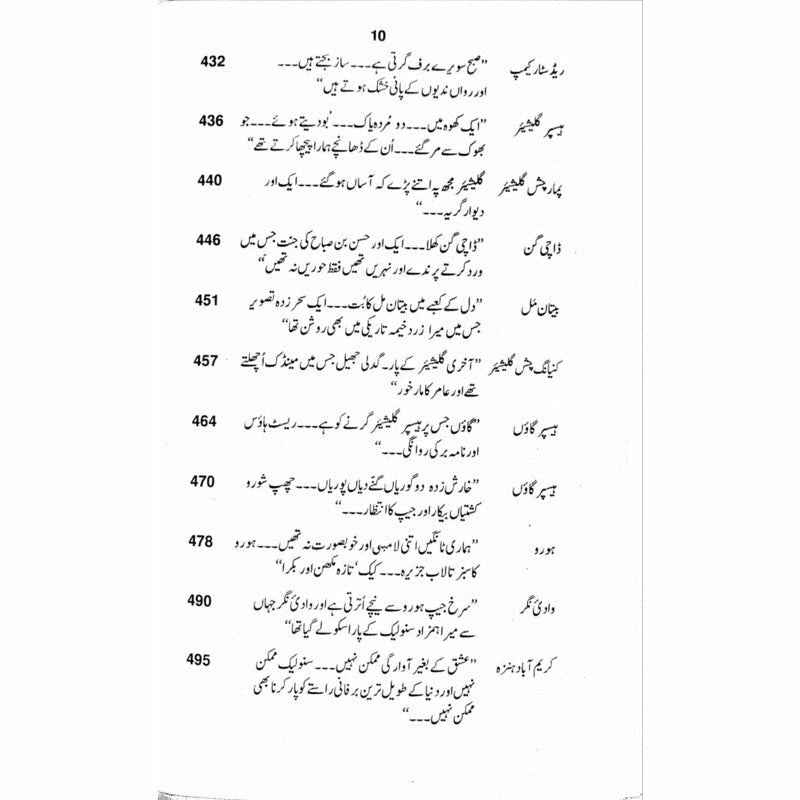 10
ریڈ سٹار کیمپ ”صبح سویرے برف گرتی ہے۔۔۔ ساز بجتے ہیں۔۔۔ 432
اور رواں ندیوں کے پانی خشک ہوتے ہیں“
ہسپر گلیشیئر ”ایک کھوہ میں۔۔۔ دو مُردہ یاک۔۔۔ بُو دیتے ہوئے۔۔۔ جو 436
بھوک سے مر گئے۔۔۔ اُن کے ڈھانچے ہمارا پیچھا کرتے تھے“
پمار چش گلیشیئر گلیشیئر مجھ پہ اتنے پڑے کہ آساں ہو گئے۔۔۔ ایک اور 440
دیوار گریہ۔۔۔“
ڈاچی گن ”ڈاچی گن کھلا۔۔۔ ایک اور حسن بن صباح کی جنت جس میں 446
ورد کرتے پرندے اور نہریں تھیں فقط حوریں نہ تھیں“
بیتان مَل ”دل کے کعبے میں بیتان مل کا بُت۔۔۔ ایک سحر زدہ تصویر 451
جس میں میرا زرد خیمہ تاریکی میں بھی روشن تھا“
کنیانگ چش گلیشیئر ”آخری گلیشیئر کے پار۔ گدلی جھیل جس میں مینڈک اُچھلتے 457
تھے اور عامر کا مارخور“
ہسپر گاؤں ”گاؤں جس پر ہسپر گلیشیئر گرنے کو ہے۔۔۔ ریسٹ ہاؤس 464
اور نامہ بر کی روانگی۔۔۔“
ہسپر گاؤں ”خارش زدہ دو گوریاں گنّے دیاں پوریاں۔۔۔ چھپ شورو 470
کشتیاں بیکار اور جیپ کا انتظار۔۔۔“
ہورو ”ہماری ٹانگیں اتنی لامبی اور خوبصورت نہ تھیں۔۔۔ ہورو 478
کا سبز تالاب جزیرہ۔۔۔ کیک‘ تازہ مکھن اور بکرا“
وادیٔ نگر ”سرخ جیپ ہورو سے نیچے اُترتی ہے اور وادیٔ نگر جہاں 490
سے میرا ہمزاد سنولیک کے پار اسکولے گیا تھا“
کریم آباد ہنزہ ”عشق کے بغیر آوارگی ممکن نہیں۔۔۔ سنولیک ممکن 495
نہیں اور دنیا کے طویل ترین برفانی راستے کو پار کرنا بھی
ممکن نہیں۔۔۔“